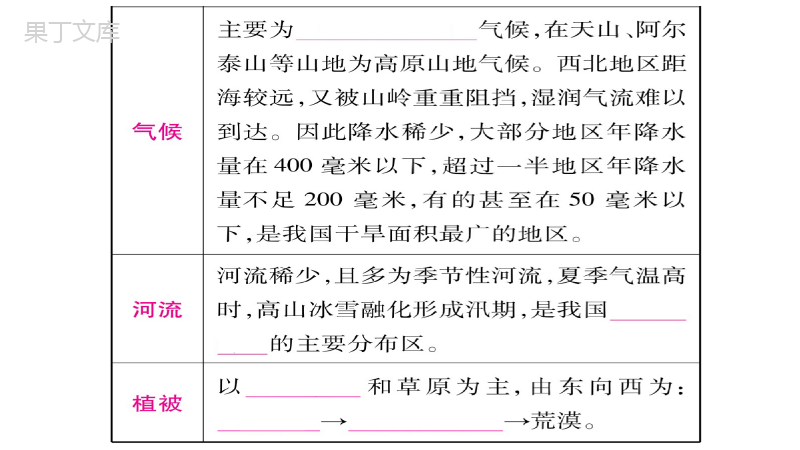 果丁文库
气候
主要为__________气候,在天山、阿尔
泰山等山地为高原山地气候。西北地区距
海较远,又被山岭重重阻挡,湿润气流难以
到达。因此降水稀少,大部分地区年降水
量在400毫米以下,超过一半地区年降水
量不足200毫米,有的甚至在50毫米以
下,是我国干旱面积最广的地区。
河流
河流稀少,且多为季节性河流,夏季气温高
时,高山冰雪融化形成汛期,是我国______
____的主要分布区。
植被
以________和草原为主,由东向西为:
________→____________→荒漠。